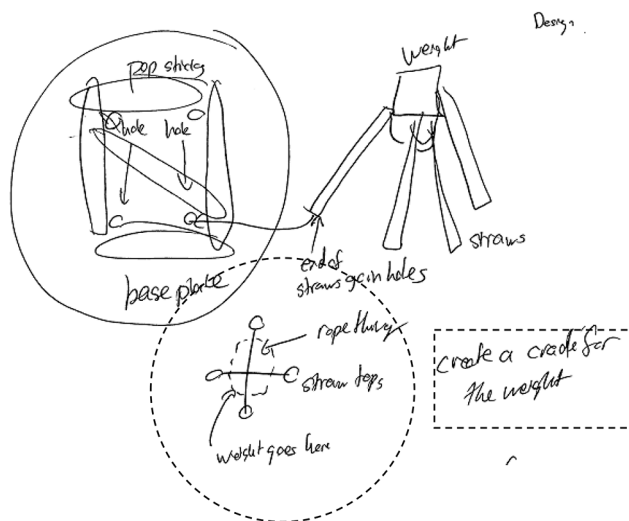 Design.
weight
pop sticks
hole hole
base plate
end of
straws go in holes
straws
rope thingy
straw tops
weight goes here
create a cradle for
the weight